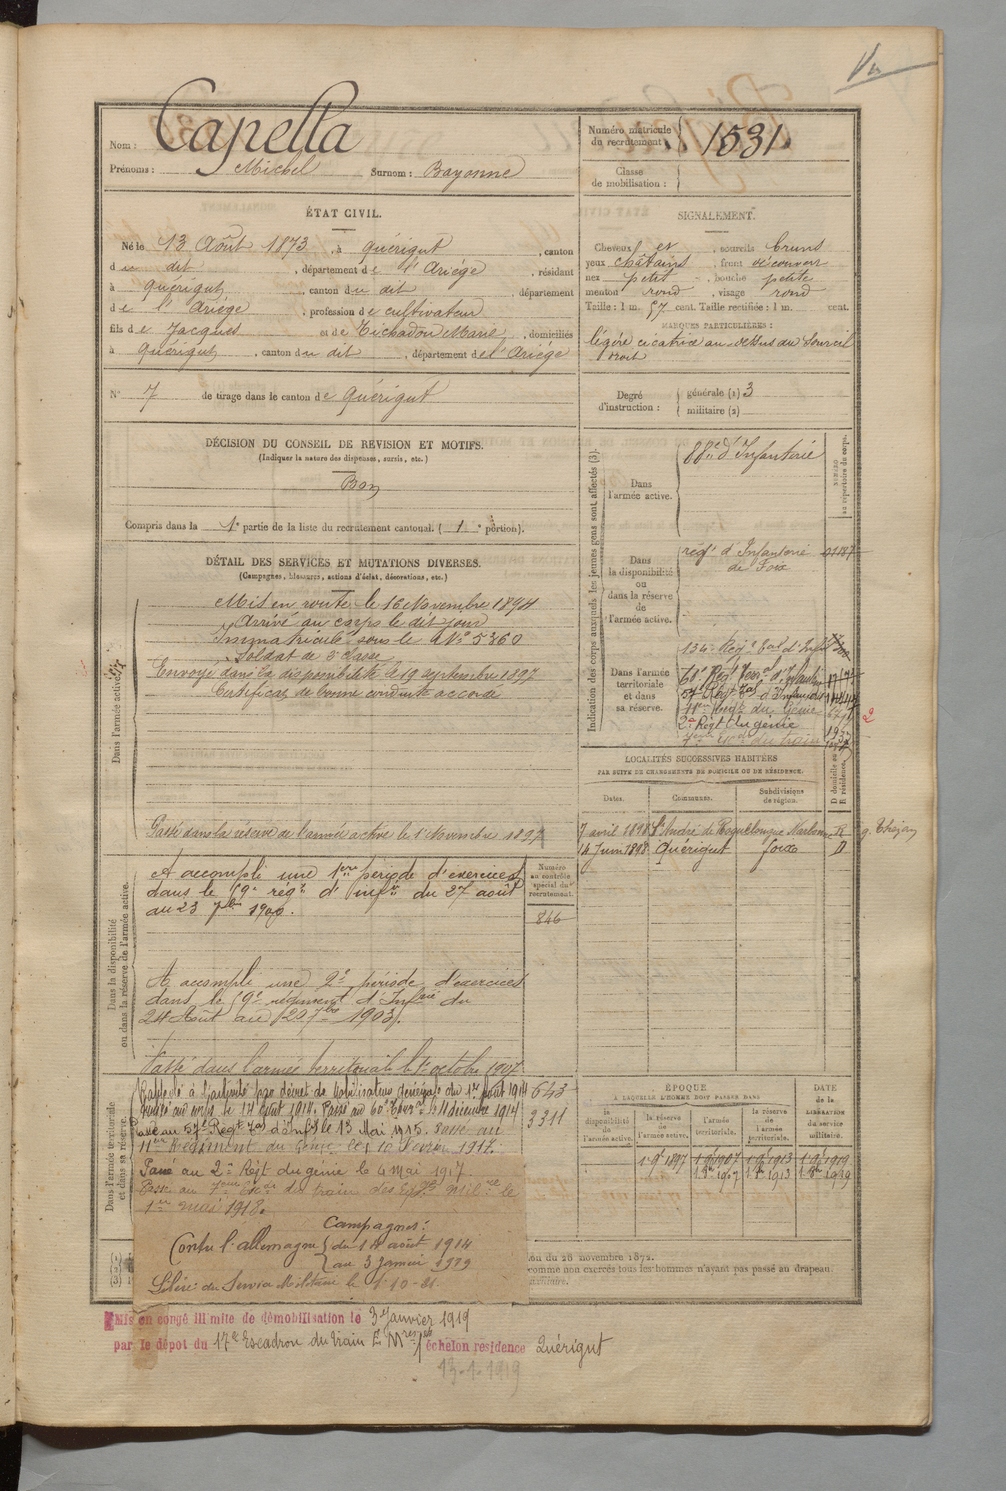 Vu
Nom : Capella
Prénoms : Michel Surnom : Bayonne
Numéro matricule du recrutement : 1531
Classe de mobilisation :
ÉTAT CIVIL.
Né le 13 Août 1873, à Quérigut, canton
du dit, département de l'Ariège, résidant
à Quérigut, canton du dit, département
de l'Ariège, profession de cultivateur
fils de Jacques et de Tichadou Marie, domiciliés
à Quérigut, canton du dit, département de l'Ariège
N° 7 de tirage dans le canton de Quérigut
SIGNALEMENT.
Cheveux et, sourcils bruns
yeux châtains, front découvert
nez petit, bouche petite
menton rond, visage rond
Taille : 1 m. 57 cent. Taille rectifiée : 1 m. cent.
MARQUES PARTICULIÈRES :
légère cicatrice au-dessus du sourcil
droit
Degré d'instruction : générale (1) 3
militaire (2)
DÉCISION DU CONSEIL DE RÉVISION ET MOTIFS.
(Indiquer la nature des dispenses, sursis, etc.)
Bon
Compris dans la 1e partie de la liste du recrutement cantonal. ( 1e portion).
DÉTAIL DES SERVICES ET MUTATIONS DIVERSES.
(Campagnes, blessures, actions d'éclat, décorations, etc.)
Dans l'armée active.
Mis en route le 16 Novembre 1894
Arrivé au corps le dit jour
Immatriculé sous le No 5360
Soldat de 2e classe
Envoyé dans la disponibilité le 19 septembre 1897
Certificat de bonne conduite accordé
Passé dans la réserve de l'armée active le 1 Novembre 1897
Indication des corps auxquels les jeunes gens sont affectés (3).
NUMÉRO au répertoire du corps.
Dans l'armée active.
88e d'Infanterie
Dans la disponibilité ou dans la réserve de l'armée active.
régt d'Infanterie
de Foix
Dans l'armée territoriale et dans sa réserve.
134e Régt Tal d'Infie
60e Régt Terral d'Infanterie
57e Régt Tal d'Infanterie
11eme Régt du Génie
2e Régt du génie
7eme Escon du train
LOCALITÉS SUCCESSIVES HABITÉES
PAR SUITE DE CHANGEMENTS DE DOMICILE OU DE RÉSIDENCE.
Dates. Communes. Subdivisions de région. D domicile ou R résidence.
7 avril 1898 St André de Roquelongue Narbonne R
14 Juin 1898 Quérigut Foix D
Dans la disponibilité ou dans la réserve de l'armée active.
Numéro au contrôle spécial du recrutement.
846
A accompli une 1ere période d'exercices
dans le 59e régt d'Infie du 27 août
au 23 7bre 1900.
A accompli une 2e période d'exercices
dans le 59e régiment d'Infrie du
24 Août au 20 7bre 1903.
Passé dans l'armée territoriale le 1er octobre 1907
Dans l'armée territoriale et dans sa réserve.
Rappelé à l'activité par décret de mobilisation générale du 1er août 1914
Arrivé au corps le 14 août 1914. Passé au 60e Terral le 11 décembre 1914
Passé au 57e Régt Tal d'Infie le 13 Mai 1915. Passé au
11eme Régiment du Génie le 10 Février 1917.
Passé au 2e Régt du génie le 4 mai 1917.
Passé au 7eme Escon du train des Eqges milres le
1er mai 1918.
Campagnes :
Contre l'allemagne { du 14 août 1914
au 3 janvier 1919
Libéré du Service Militaire le 1-10-21.
643
3311
ÉPOQUE
À LAQUELLE L'HOMME DOIT PASSER DANS
la disponibilité de l'armée active. la réserve de l'armée active. l'armée territoriale. la réserve de l'armée territoriale.
DATE de la LIBÉRATION du service militaire.
1 9bre 1897 1 9bre 1907 1 9bre 1913 1 9bre 1919
1 8bre 1907 1 8bre 1913 1 8bre 1919
du 28 novembre 1872.
comme non exercés tous les hommes n'ayant pas passé au drapeau.
Mis en congé illimité de démobilisation le 3 Janvier 1919
par le dépôt du 17e Escadron du train E Mres 1er échelon résidence Quérigut
13-1-1919